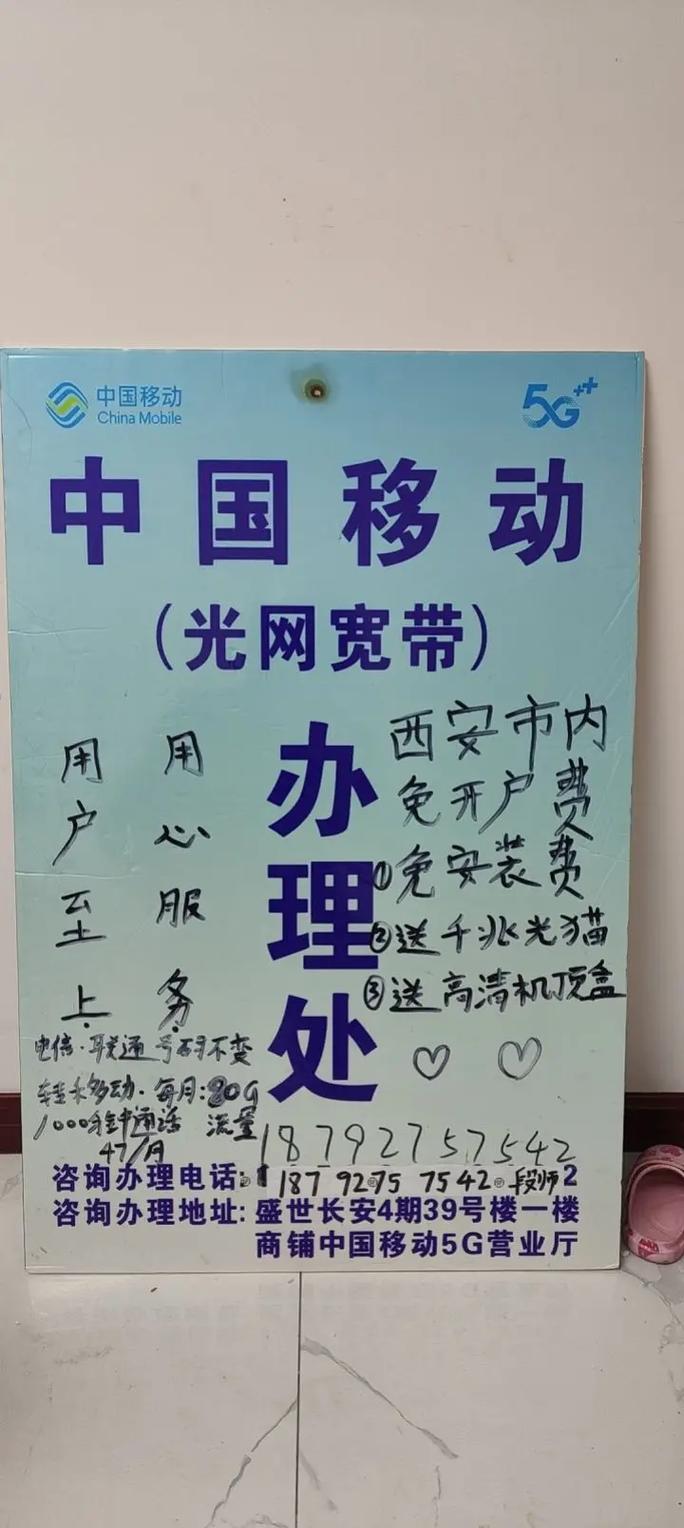 中国移动
China Mobile
5G++
中国移动
(光网宽带)
办理处
用户至上
用心服务
西安市内
免开户费
①免安装费
②送千兆光猫
③送高清机顶盒
♡ ♡
电信·联通号码不变
转来移动·每月:80G
1000分钟通话 流量
47/月
18792757542
咨询办理电话: 187 9275 7542 段师2
咨询办理地址: 盛世长安4期39号楼一楼
商铺中国移动5G营业厅